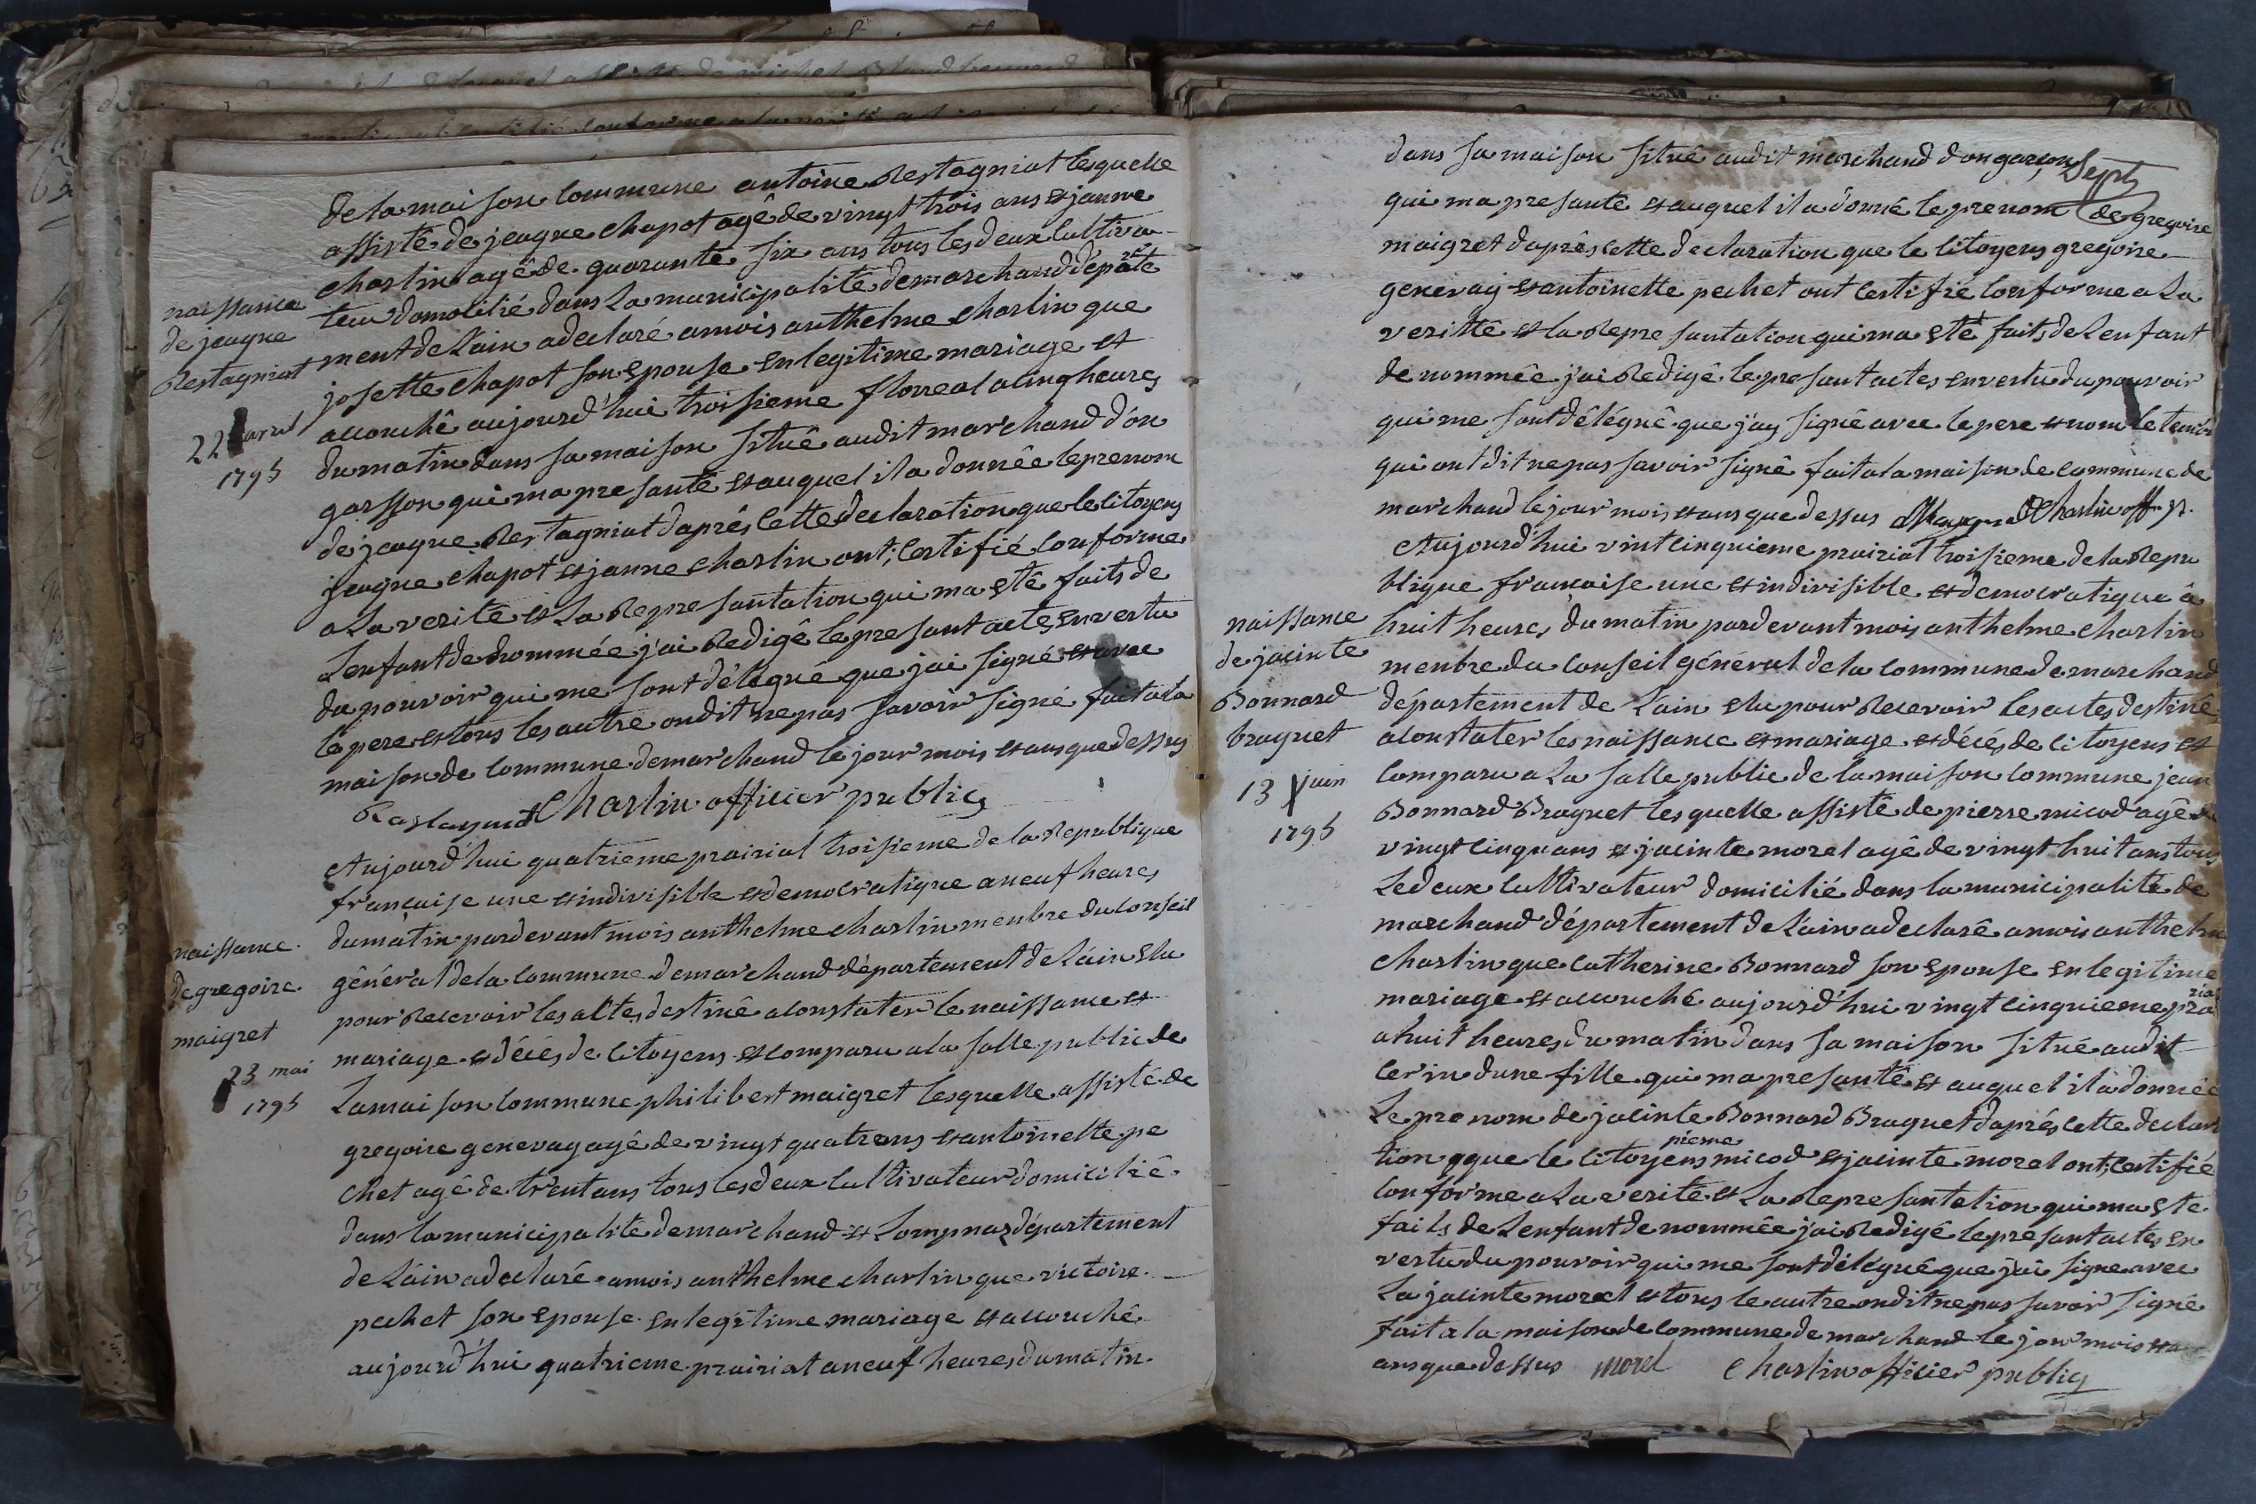 de la maison commune antoine Restagniat lesquelle
assisté de jeaque chapot agê de vingt trois ans et janne
charlin agê de quarante six ans tous les deux cultiva-
teur domolicié dans La municipalité de marchand dépate
naissance
de jeaque
Restagniat
22 avril
1795
ment de Lain a declaré amois anthelme charlin que
josette chapot son epouse en legitime mariage et
acouchê aujourd'hui troisieme florreal a cinq heures
du matin dans sa maison situê audit marchand d'on
garsson qui ma presanté et auquel il a donnêe le prenom
de jeaque Restagniat d'aprês cette declaration que le citoyens
jeaque chapot et janne charlin ont certifié conforme
a La verité et La Representation qui ma etê faits de
L'enfant de nommée j'ai Redigê le presant actes en vertu
du pouvoir qui me sont délégué que jai signé et avec
le pere et tous les autre ondit ne pas savoir signé fait a la
maison de commune de marchand le jour mois et ans que dessus
Raslagniat Charlin officier public
Aujourd'hui quatrieme prairial troisieme de la Republique
francaise une et indivisible et democratique a neuf heures
du matin pardevant mois anthelme charlin menbre du conseil
naissance
de gregoire
maigret
23 mai
1795
général de la commune de marchand département de Lain elu
pour Recevoir les actes destinê a constater le naissance et
mariage et décés de citoyens et comparu a la salle public de
La maison commune philibert maigret lesquelle assisté de
gregoire genevay agê de vingt quatre ans et antoinette pe
chet agê de trent ans tous les deux cultivateur domiciliê
dans la municipalité de marchand et Lompnaz département
de Lain a declaré amois anthelme charlin que victoire
pechet son epouse en legitime mariage et acouchê
aujourd'hui quatrieme prairial a neuf heures du matin
dans sa maison situê audit marchand d'on garçon
Sept
qui ma presanté et auquel il a donné le prenom de gregoire
maigret d'aprês cette declaration que le citoyens gregoire
genevay et antoinette pechet ont certifié conforme a La
veritté et la Represantation qui ma etê faits de L'enfant
de nommêe j'ai Redigê le presant actes en vertu du pouvoir
qui me sont délégué que j'ay signê avec le pere et non le temoi
qui ont dit ne pas savoir signê fait a la maison de commune de
marchand le jour mois et ans que dessus Charlin off. p.
Aujourd'hui vint cinquieme prairial troisieme de la Repu
blique francaise une et indivisible et democratique â
naissance
de jacinte
Bonnard
braquet
13 juin
1795
huit heures du matin pardevant mois anthelme charlin
menbre du conseil général de la commune de marchand
département de Lain elu pour Recevoir les actes destinê
a constater les naissance et mariage et décés de citoyens et
comparu a La salle public de la maison commune jean
Bonnard Braquet lesquelle assisté de pierre micod agê de
vingt cinq ans et jacinte morel agê de vingt huit ans tous
Le deux cultivateur domicilié dans la municipalité de
marchand département de Lain a declarê amois anthelm
charlin que catherine Bonnard son epouse en legitime
mariage et acouché aujourd'hui vingt cinquieme prarial
a huit heures du matin dans sa maison situé audit
cerin d'une fille qui ma presantê et auquel il a donnée
Le prenom de jacinte Bonnard Braquet d'aprés cette declara
tion que le citoyens pierre micod et jacinte morel ont certifié
conforme a La verité et La Represantation qui ma ete
faits de L'enfant de nommée j'ai Redigé le presant actes en
vertu du pouvoir qui me sont délégué que j'ai signe avec
La jacinte morel et tous le autre ondit ne pas savoir signé
fait a la maison de commune de marchand le jour mois et
ans que dessus morel Charlin officier public